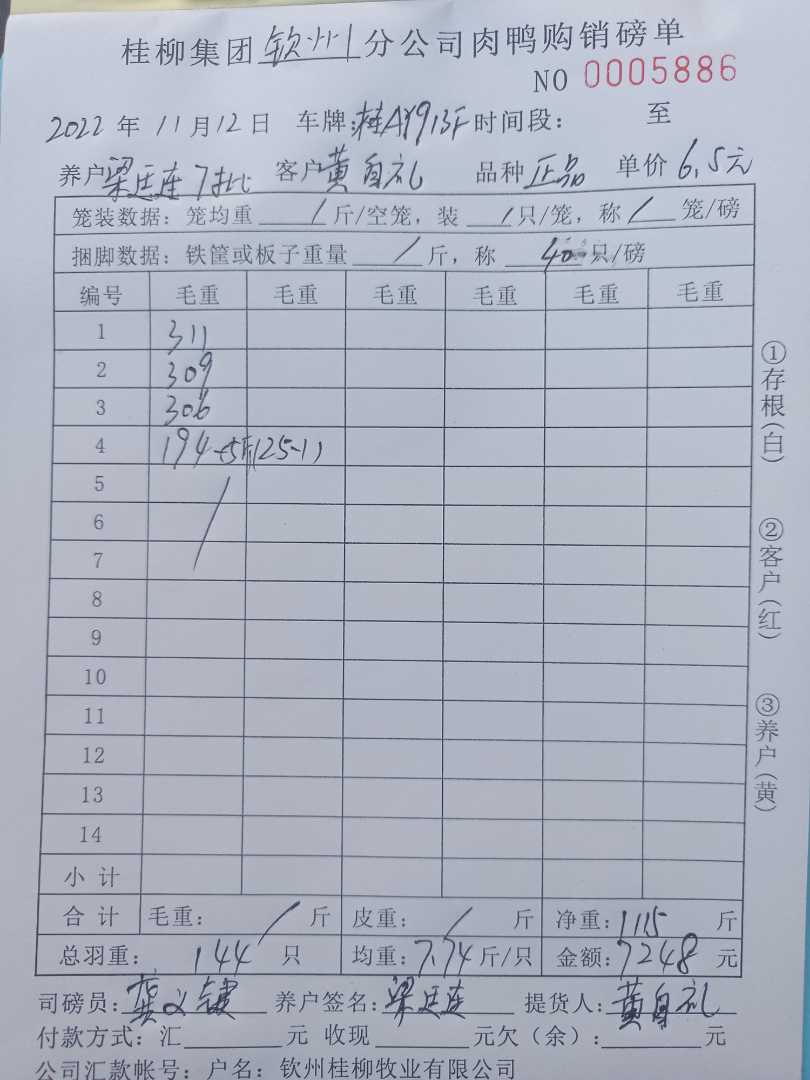 桂柳集团钦州分公司肉鸭购销磅单
NO 0005886
2022年11月12日 车牌:桂AY913F时间段: 至
养户梁廷连7批 客户黄自礼 品种正品 单价6.5元
笼装数据:笼均重/斤/空笼,装/只/笼,称/笼/磅
捆脚数据:铁筐或板子重量/斤,称40只/磅
编号 毛重 毛重 毛重 毛重 毛重 毛重
1 311
2 309
3 306
4 194-5斤(25-1)
5 /
6
7
8
9
10
11
12
13
14
小计
合计 毛重:/斤 皮重:/斤 净重:1115斤
总羽重:144只 均重:7.74斤/只 金额:7248元
司磅员:龚义键 养户签名:梁廷连 提货人:黄自礼
付款方式:汇元 收现元欠(余):元
公司汇款帐号:户名:钦州桂柳牧业有限公司
①存根(白)
②客户(红)
③养户(黄)